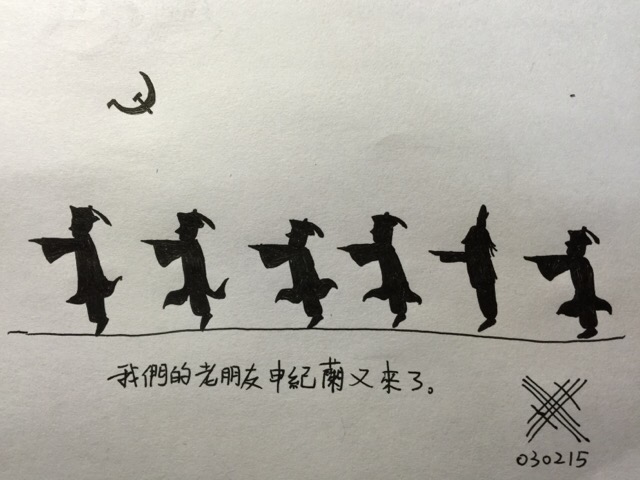 我們的老朋友申紀蘭又來了。
030215